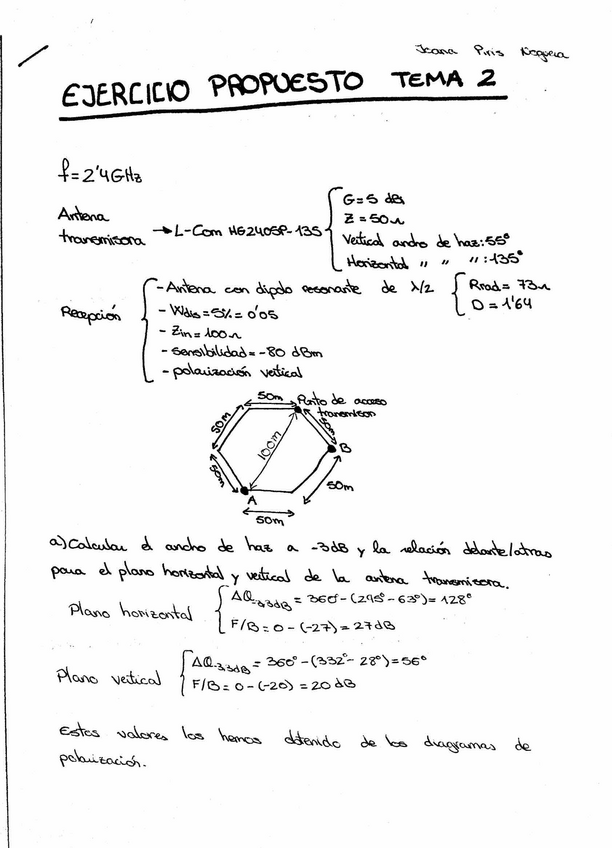 Joana Piris Noguera
EJERCICIO PROPUESTO TEMA 2
f=2'4GHz
Antena
transmisora → L-Com HG2405P-135
G=5 dBi
Z=50Ω
Vertical ancho de haz:55°
Horizontal " " " :135°
Recepción
- Antena con dipolo resonante de λ/2
Rrad= 73Ω
D=1'64
- Wdis=5%=0'05
- Zin=100Ω
- sensibilidad=-80 dBm
- polarización vertical
50m
Punto de acceso
transmisor
50m
50m
100m
B
50m
50m
A
50m
a)Calcular el ancho de haz a -3dB y la relación delante/atras
para el plano horizontal y vertical de la antena transmisora.
Plano horizontal
= 360°-(295°-63°)= 128°
F/B= 0-(-27)=27dB
Plano vertical
= 360°-(332°-28°)=56°
F/B= 0-(-20)=20 dB
Estos valores los hemos obtenido de los diagramas de
polarización.